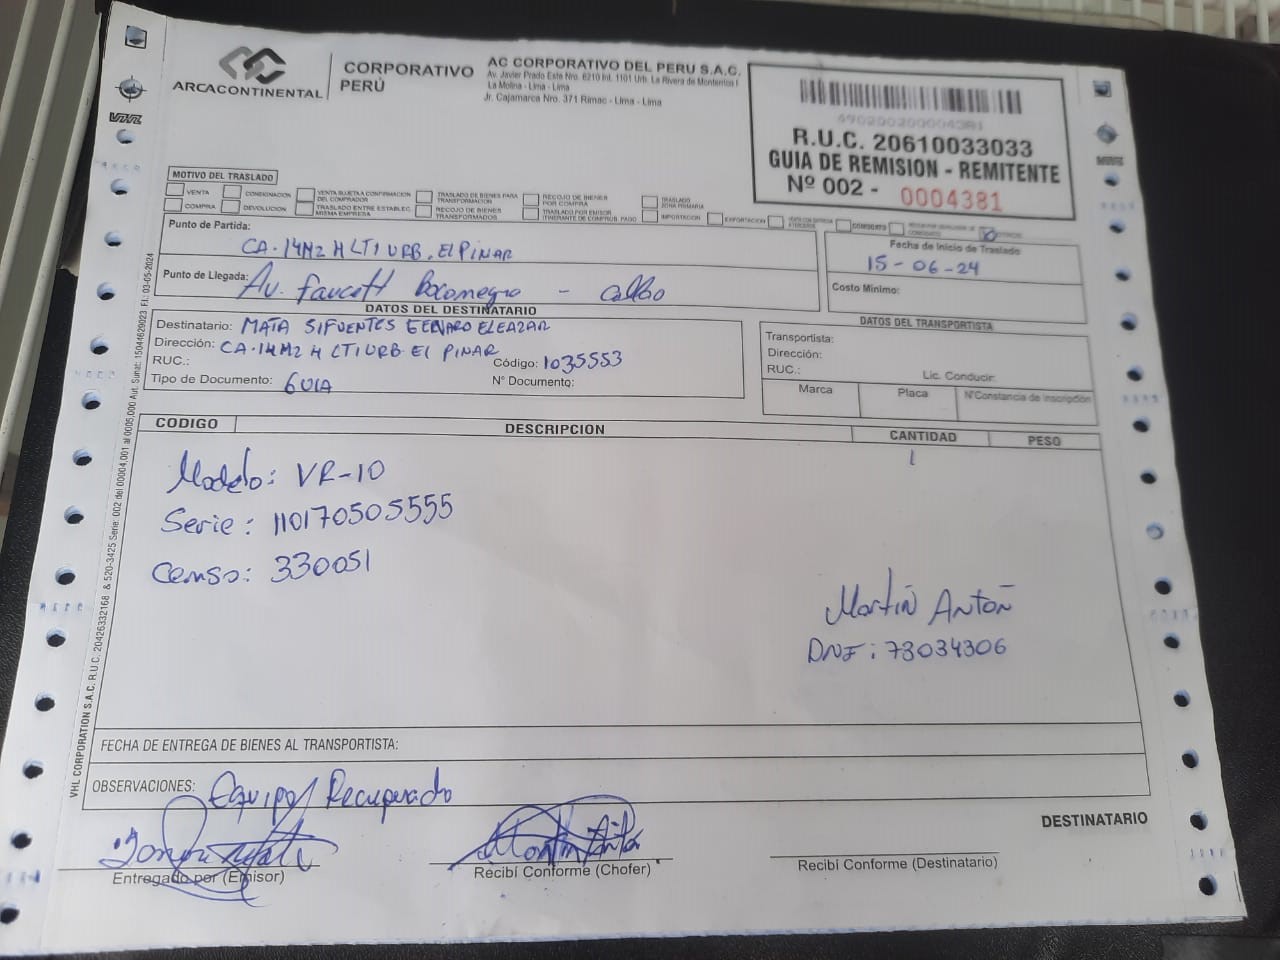 ARCACONTINENTAL
CORPORATIVO
PERÚ
AC CORPORATIVO DEL PERU S.A.C.
Av. Javier Prado Este Nro. 6210 Int. 1101 Urb. La Rivera de Monterrico I
La Molina - Lima - Lima
Jr. Cajamarca Nro. 371 Rimac - Lima - Lima
R.U.C. 20610033033
GUIA DE REMISION - REMITENTE
Nº 002 - 0004381
MOTIVO DEL TRASLADO
VENTA CONSIGNACION VENTA SUJETA A CONFIRMACION DEL COMPRADOR TRASLADO DE BIENES PARA TRANSFORMACION RECOJO DE BIENES POR COMPRA TRASLADO ZONA PRIMARIA
COMPRA DEVOLUCION TRASLADO ENTRE ESTABLEC. MISMA EMPRESA RECOJO DE BIENES TRANSFORMADOS TRASLADO POR EMISOR ITINERANTE DE COMPROB. PAGO IMPORTACION EXPORTACION
Punto de Partida: CA. 14 MZ H LT1 URB. El PINAR
Fecha de Inicio de Traslado
15-06-24
Punto de Llegada: Av. Faucett Bocanegra - Callao
Costo Mínimo:
DATOS DEL DESTINATARIO
Destinatario: MATA SIFUENTES GENARO ELEAZAR
Dirección: CA. 14 MZ H LT1 URB. El PINAR
RUC.: Código: 1035553
Tipo de Documento: GUIA N° Documento:
DATOS DEL TRANSPORTISTA
Transportista:
Dirección:
RUC.: Lic. Conducir:
Marca Placa N°Constancia de Inscripción
CODIGO DESCRIPCION CANTIDAD PESO
1
Modelo: VR-10
Serie: 110170505555
Censo: 330051
Martiñ Antoñ
DNI: 73034306
FECHA DE ENTREGA DE BIENES AL TRANSPORTISTA:
OBSERVACIONES: Equipo Recuperado
DESTINATARIO
Entregado por (Emisor)
Recibí Conforme (Chofer)
Recibí Conforme (Destinatario)
VHL CORPORATION S.A.C. R.U.C. 20426332168 & 520-3425 Serie: 002 del 00004,001 al 0005,000 Aut. Sunat: 15044629023 F.I.: 03-05-2024